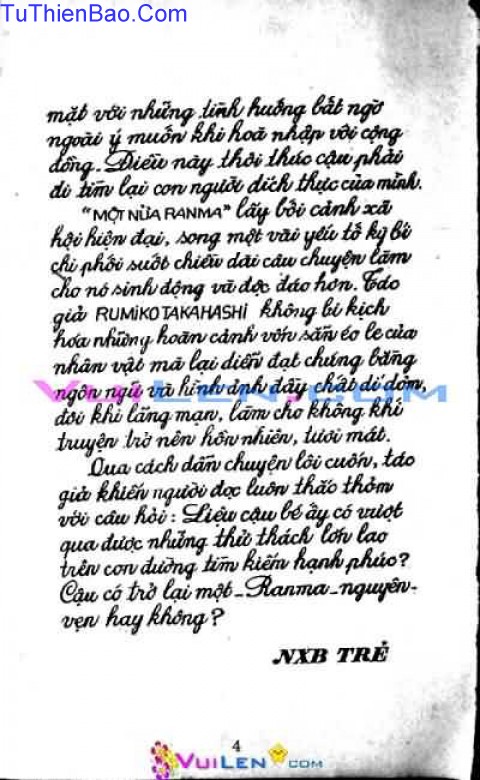 TuThienBao.Com
mặt với những tình huống bất ngờ
ngoài ý muốn khi hoà nhập với cộng
đồng. Điều này thôi thúc cậu phải
đi tìm lại con người đích thực của mình.
"MỘT NỬA RANMA" lấy bối cảnh xã
hội hiện đại, song một vài yếu tố kỳ bí
chi phối suốt chiều dài câu chuyện làm
cho nó sinh động và độc đáo hơn. Tác
giả RUMIKO TAKAHASHI không bi kịch
hóa những hoàn cảnh vốn sẵn éo le của
nhân vật mà lại diễn đạt chúng bằng
ngôn ngữ và hình ảnh đầy chất dí dỏm,
đôi khi lãng mạn, làm cho không khí
truyện trở nên hồn nhiên, tươi mát.
Qua cách dẫn chuyện lôi cuốn, tác
giả khiến người đọc luôn thấc thỏm
với câu hỏi: Liệu cậu bé ấy có vượt
qua được những thử thách lớn lao
trên con đường tìm kiếm hạnh phúc?
Cậu có trở lại một_Ranma_nguyên-
vẹn hay không?
NXB TRẺ
4
VUILEN.COM